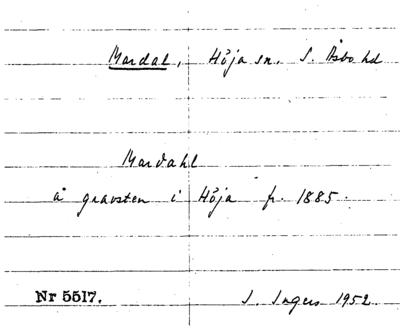 Mardal, Höja sn. S. Åsbo hd
Mardahl
å gravsten i Höja fr. 1885.
Nr 5517. I. Ingers 1952.